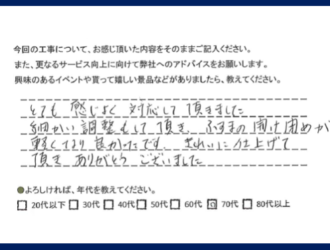 今回の工事について、お感じ頂いた内容をそのままご記入ください。
また、更なるサービス向上に向けて弊社へのアドバイスをお願いします。
興味のあるイベントや貰って嬉しい景品などがありましたら、教えてください。
とても 感じよく 対応して 頂きました
細かい 調整もして 頂き ふすまの 開け閉めが
軽くなり 良かったです きれいに 仕上げて
頂き ありがとう ございました
●よろしければ、年代を教えてください。
□20代以下 □30代 □40代 □50代 □60代 ☑70代 □80代以上